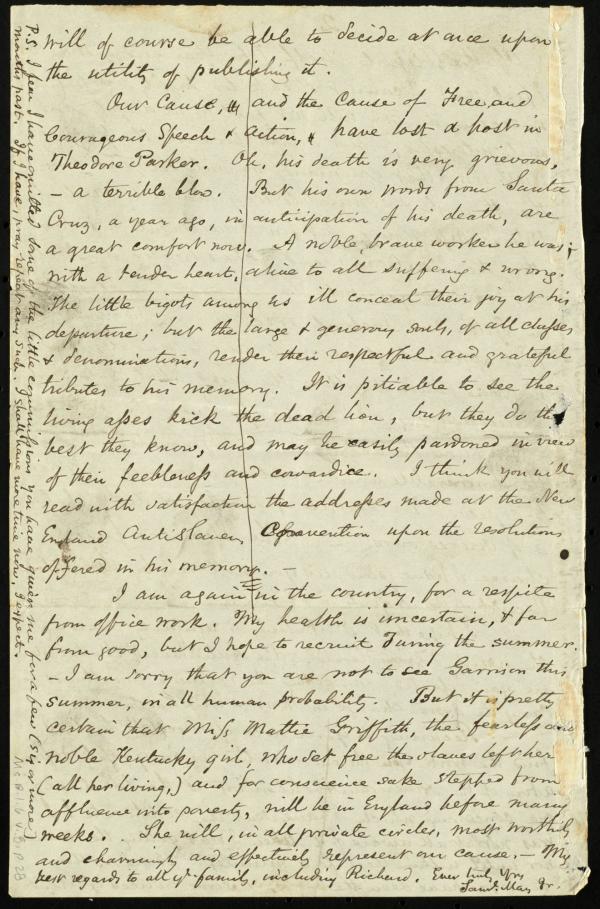 will of course be able to decide at once upon
the utility of publishing it.
Our Cause, and the Cause of Free and
Courageous Speech & action, have lost a host in
Theodore Parker. Oh, his death is very grievous,
– a terrible blow. But his own words from Santa
Cruz, a year ago, in anticipation of his death, are
a great comfort now. A noble, brave worker he was;
with a tender heart, alive to all suffering & wrong.
The little bigots among us ill conceal their joy at his
departure; but the large & generous souls, of all classes
& denominations, render their respectful and grateful
tributes to his memory. It is pitiable to see the
living asses kick the dead lion, but they do the
best they know, and may be easily pardoned in view
of their feebleness and cowardice. I think you will
read with satisfaction the addresses made at the New
England Antislavery Convention upon the resolutions
offered in his memory. –
I am again in the country, for a respite
from office work. My health is uncertain, & far
from good, but I hope to recruit during the summer.
– I am sorry that you are not to see Garrison this
summer, in all human probability. But it is pretty
certain that Miss Mattie Griffith, the fearless and
noble Kentucky girl, who set free the slaves left her
(all her living,) and for conscience sake stepped from
affluence into poverty, will be in England before many
weeks. She will, in all private circles, most worthily
and charmingly and effectively represent our cause. – My
best regards to all yr family, including Richard. Ever truly Yrs
Saml. May Jr.
P.S. I fear I have omitted some of the little commissions you have given me for a few (six or more)
months past. If I have, pray repeat any such. I shall have more time now, I expect.